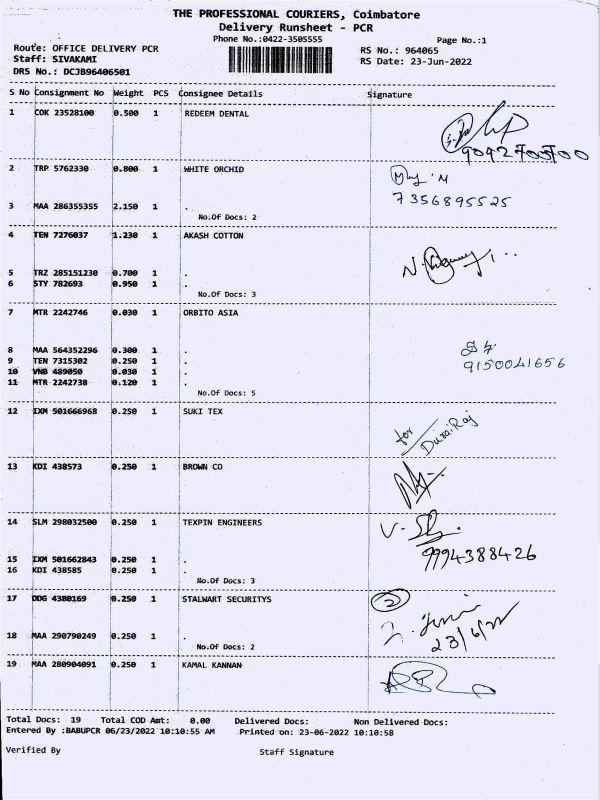 THE PROFESSIONAL COURIERS, Coimbatore
Delivery Runsheet - PCR
Phone No.:0422-3505555
Page No.:1
Route: OFFICE DELIVERY PCR
RS No.: 964065
Staff: SIVAKAMI
RS Date: 23-Jun-2022
DRS No.: DCJB96406501
S No Consignment No Weight PCS Consignee Details Signature
1 COK 23528100 0.500 1 REDEEM DENTAL
2 TRP 5762330 0.800 1 WHITE ORCHID
7356895525
3 MAA 286355355 2.150 1 .
No.Of Docs: 2
4 TEN 7276037 1.230 1 AKASH COTTON
5 TRZ 285151230 0.700 1 .
6 STY 782693 0.950 1 .
No.Of Docs: 3
7 MTR 2242746 0.030 1 ORBITO ASIA
8 MAA 564352296 0.300 1 .
9 TEN 7315302 0.250 1 .
9150041656
10 VNB 489050 0.030 1 .
11 MTR 2242738 0.120 1 .
No.Of Docs: 5
12 IXM 501666968 0.250 1 SUKI TEX
for DuraiRaj
13 KDI 438573 0.250 1 BROWN CO
14 SLM 298032500 0.250 1 TEXPIN ENGINEERS
9994388426
15 IXM 501662843 0.250 1 .
16 KDI 438585 0.250 1 .
No.Of Docs: 3
17 DDG 4380169 0.250 1 STALWART SECURITYS
2
18 MAA 290790249 0.250 1 .
23/6/22
No.Of Docs: 2
19 MAA 280904091 0.250 1 KAMAL KANNAN
Total Docs: 19 Total COD Amt: 0.00 Delivered Docs: Non Delivered Docs:
Entered By :BABUPCR 06/23/2022 10:10:55 AM Printed on: 23-06-2022 10:10:58
Verified By Staff Signature